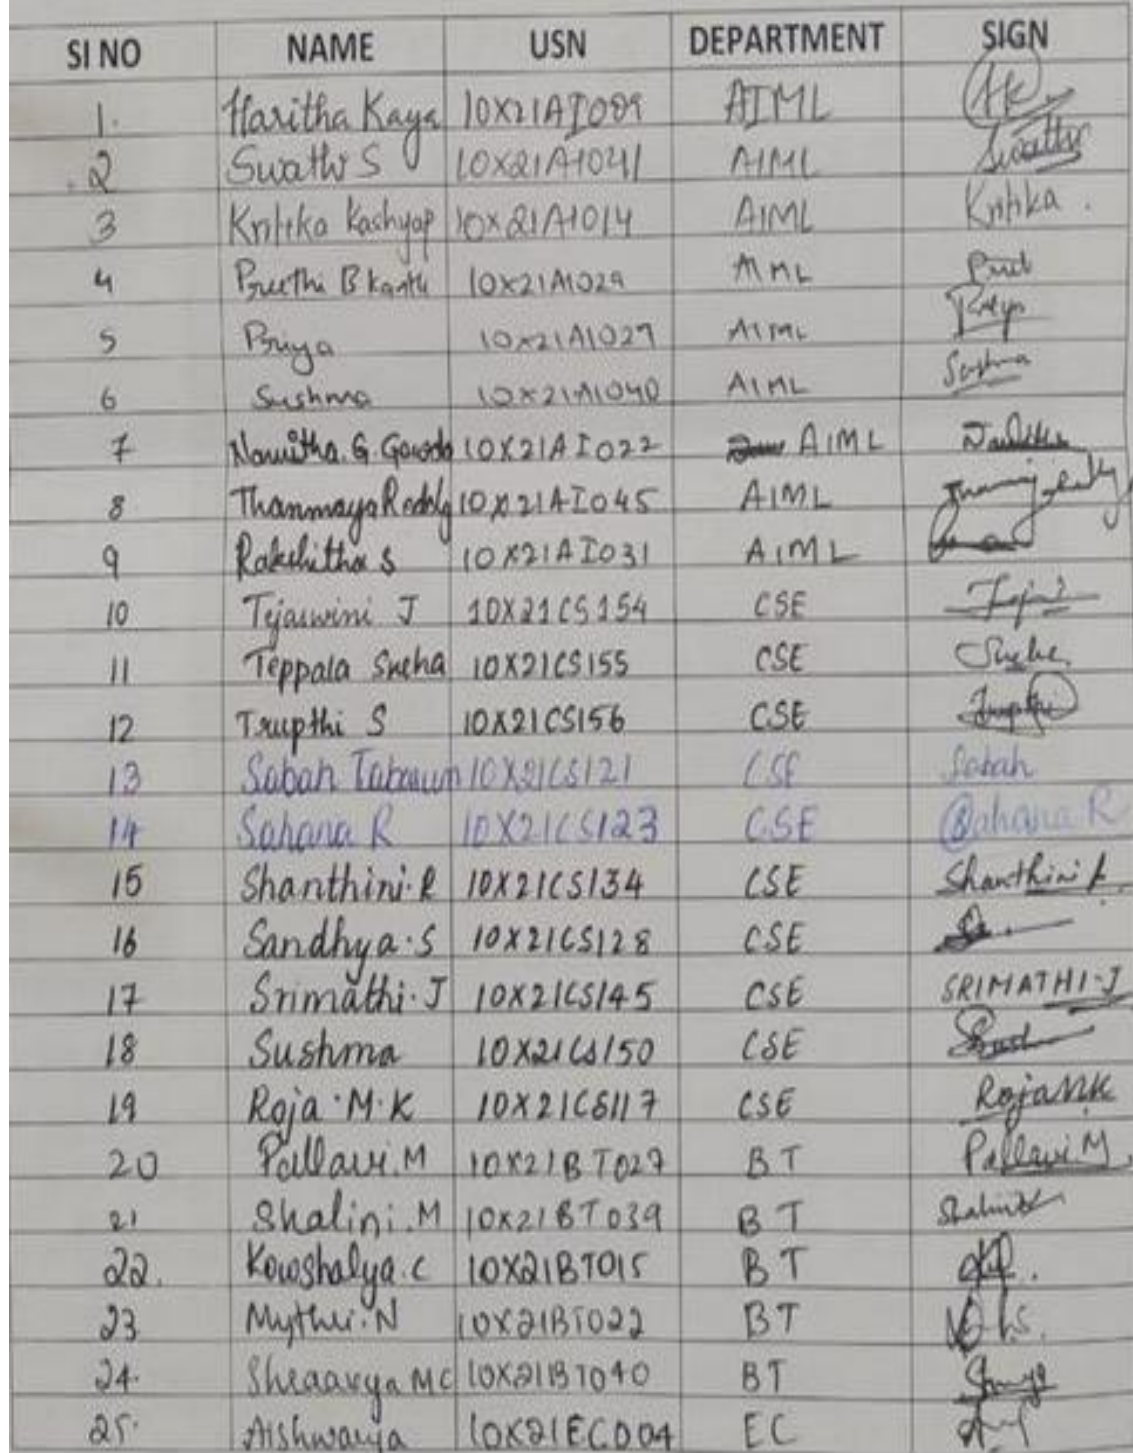 SI NO NAME USN DEPARTMENT SIGN
1. Haritha Kaya 10X21AI009 AIML
2 Swathi S 10X21AI041 AIML Swathi
3 Kritika Kashyap 10X21AI014 AIML Kritika .
4 Preethi B Kanthi 10X21AI029 AIML
5 Priya 10X21AI027 AIML Priya
6 Sushma 10X21AI040 AIML Sushma
7 Namitha.G.Gowda 10X21AI022 AIML
8 Thanmaya Reddy 10X21AI045 AIML
9 Rakshitha s 10X21AI031 AIML
10 Tejaswini J 10X21CS154 CSE
11 Teppala Sneha 10X21CS155 CSE Sneha
12 Trupthi S 10X21CS156 CSE Trupthi
13 Sabah Tabasum 10X21CS121 CSE Sabah
14 Sahana R 10X21CS123 CSE Sahana R
15 Shanthini.R 10X21CS134 CSE Shanthini R.
16 Sandhya.S 10X21CS128 CSE
17 Srimathi.J 10X21CS145 CSE SRIMATHI-J
18 Sushma 10X21CS150 CSE
19 Roja.M.K 10X21CS117 CSE Roja MK
20 Pallavi.M 10X21BT027 BT Pallavi M.
21 Shalini.M 10X21BT039 BT Shalini
22. Kowshalya.C 10X21BT015 BT
23 Mythri.N 10X21BT022 BT
24. Shraavya MC 10X21BT040 BT
25. Aishwarya 10X21EC004 EC